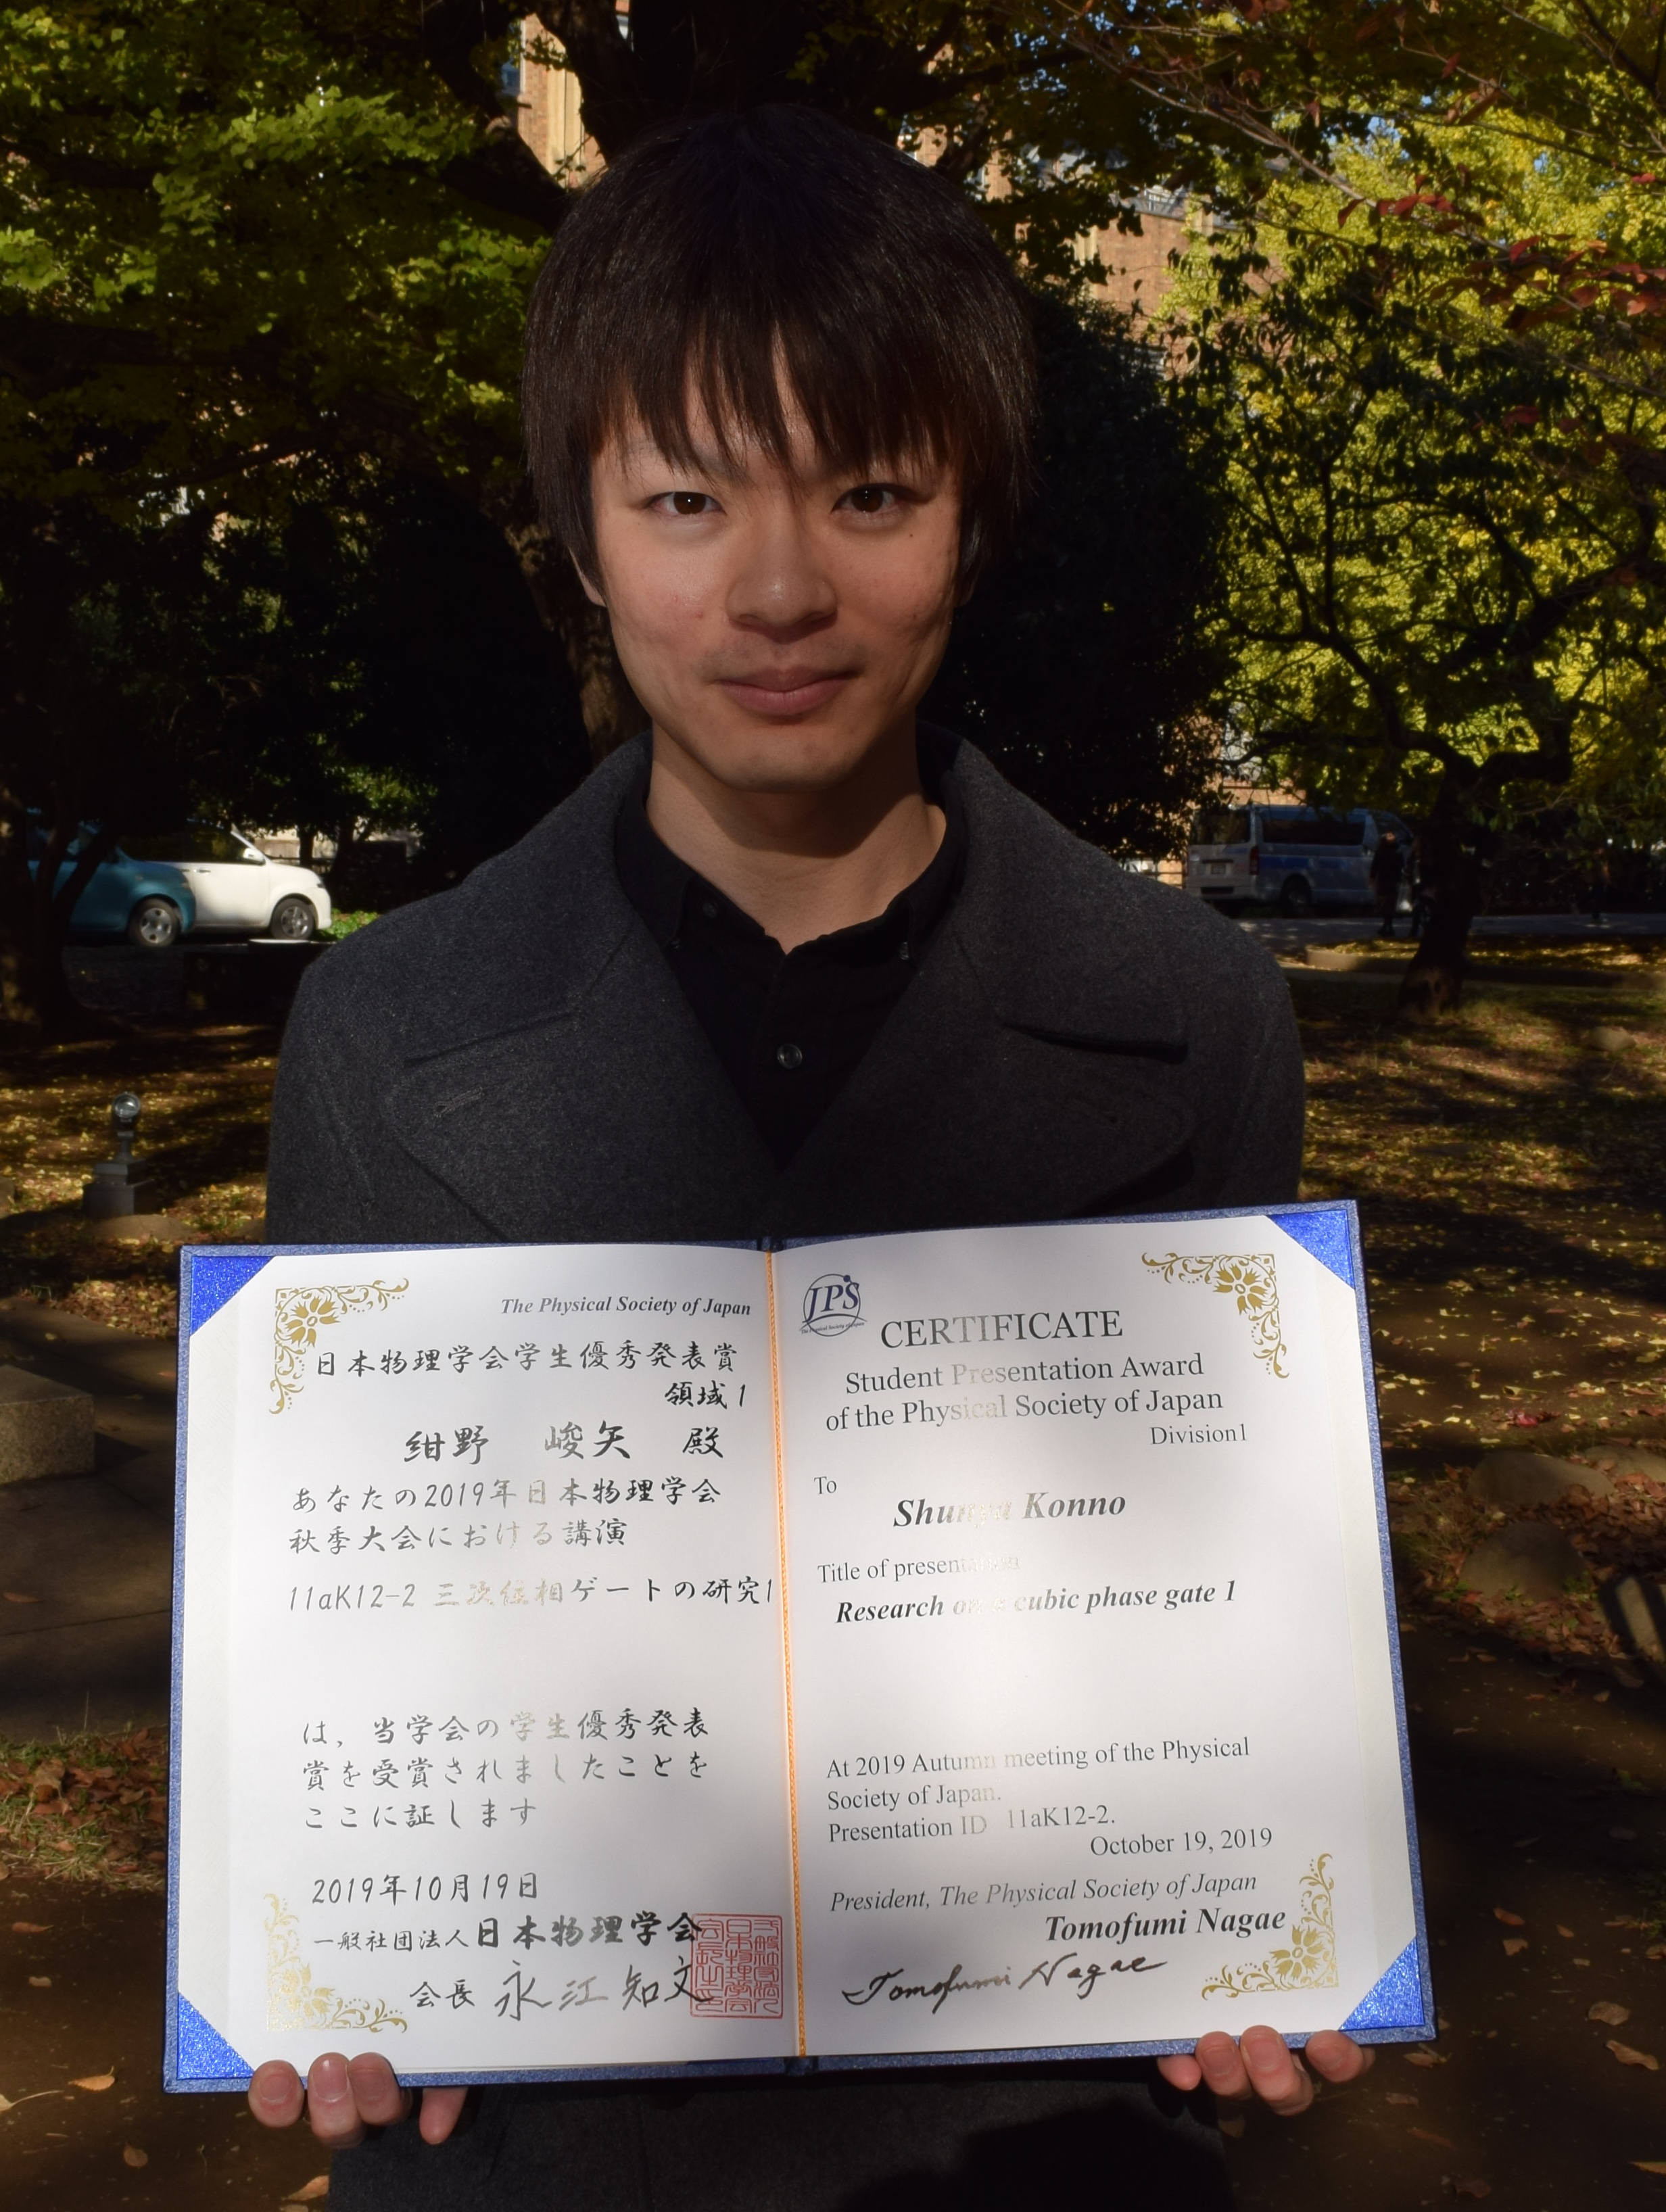 The Physical Society of Japan
日本物理学会学生優秀発表賞
領域1
紺野 峻矢 殿
あなたの2019年日本物理学会
秋季大会における講演
11aK12-2 三次位相ゲートの研究1
は，当学会の学生優秀発表
賞を受賞されましたことを
ここに証します
2019年10月19日
一般社団法人日本物理学会
会長 永江知文
JPS
The Physical Society of Japan
CERTIFICATE
Student Presentation Award
of the Physical Society of Japan
Division1
To
Shunya Konno
Title of presentation
Research on a cubic phase gate 1
At 2019 Autumn meeting of the Physical
Society of Japan.
Presentation ID 11aK12-2.
October 19, 2019
President, The Physical Society of Japan
Tomofumi Nagae
Tomofumi Nagae